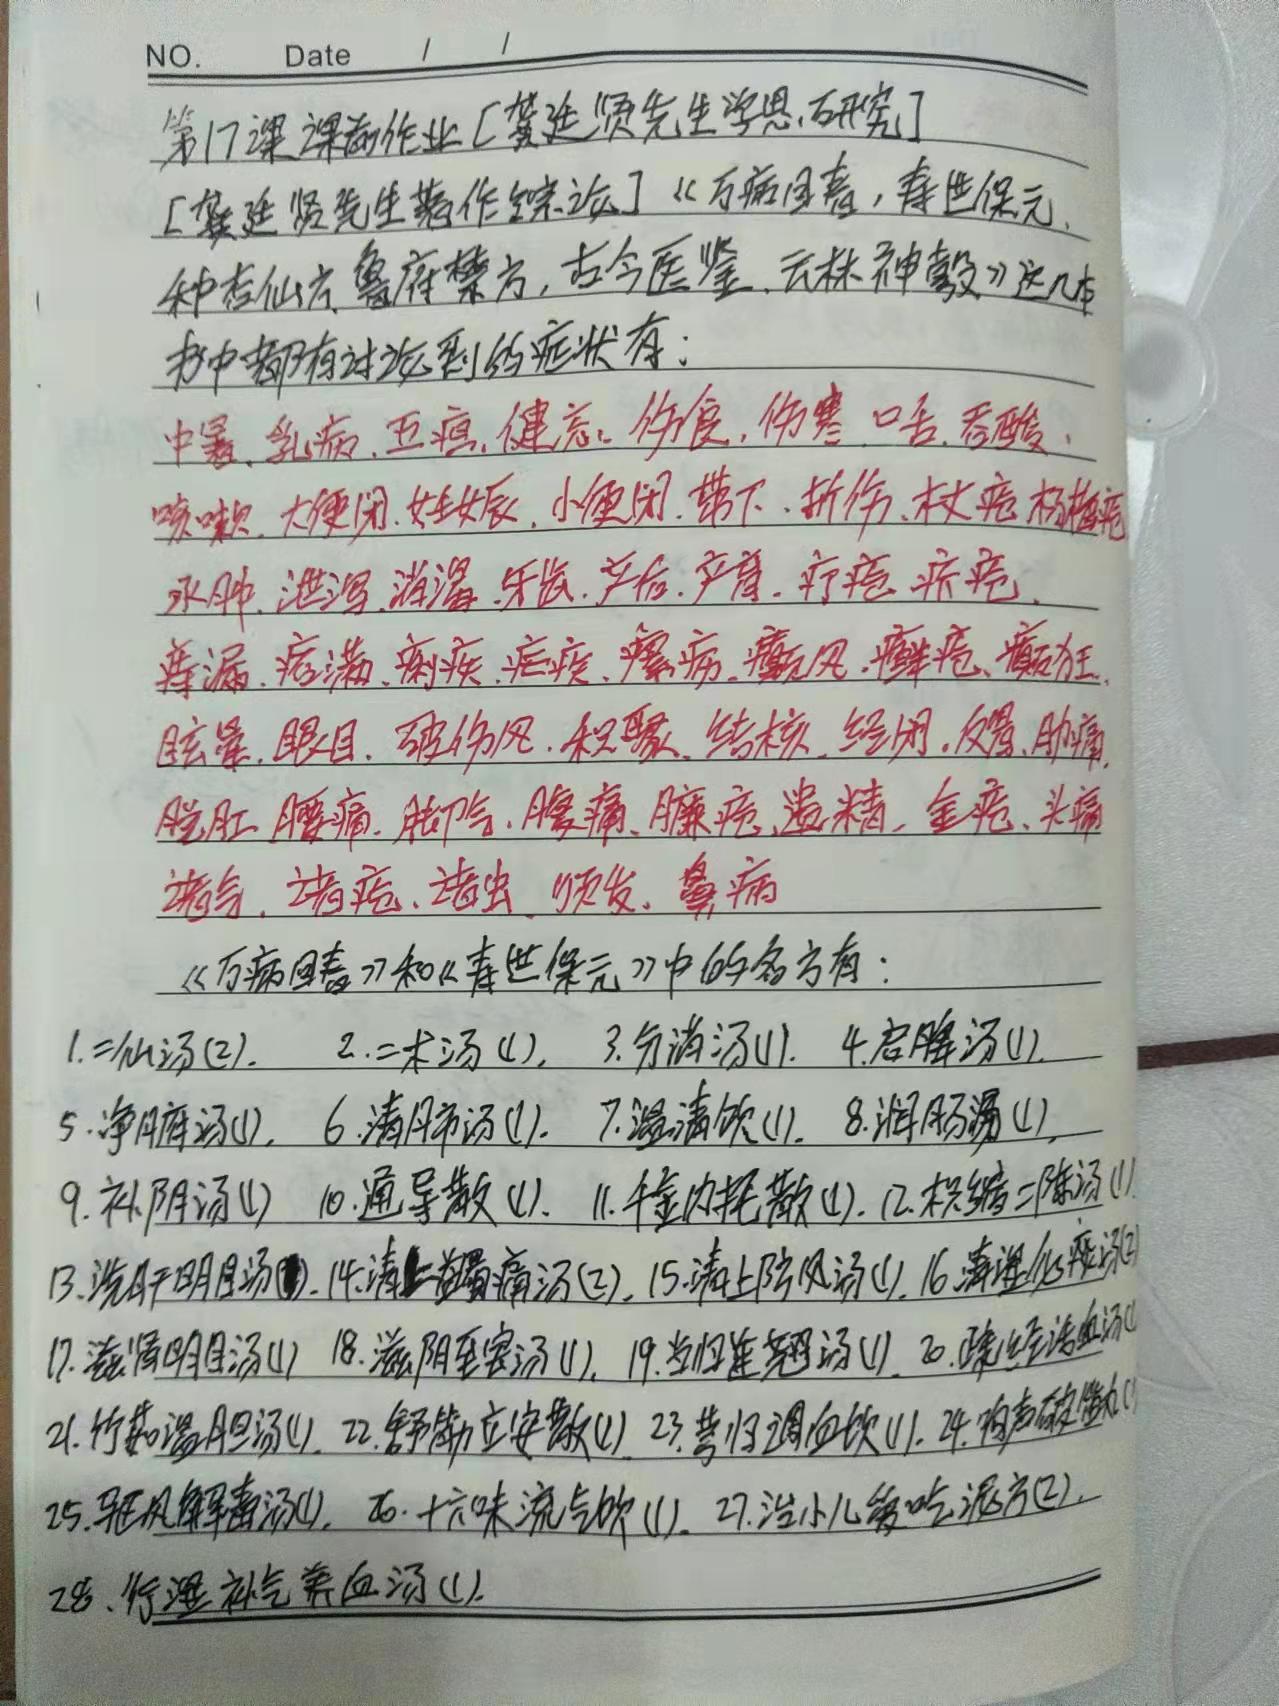 NO. Date / /
第17课 课前作业[龚廷贤先生学思研究]
[龚廷贤先生著作综论]《万病回春,寿世保元、
种杏仙方、鲁府禁方,古今医鉴、云林神彀》这几本
书中都有讨论到的症状有:
中暑、乳病、五疸、健忘、伤食、伤寒、口舌、吞酸、
咳嗽、大便闭、妊娠、小便闭、带下、折伤、杖疮、杨梅疮
水肿、泄泻、消渴、牙齿、产后、产育、疔疮、疥疮、
痔漏、痞满、痢疾、疟疾、瘰疬、癜风、癣疮、癫狂、
眩晕、眼目、破伤风、积聚、结核、经闭、反胃、胁痛、
脱肛、腰痛、脚气、腹痛、臁疮、遗精、金疮、头痛
诸气、诸疮、诸虫、须发、鼻病
《万病回春》和《寿世保元》中的名方有:
1.二仙汤(2). 2.二术汤(1). 3.分消汤(1). 4.启脾汤(1).
5.净腑汤(1). 6.清肺汤(1). 7.温清饮(1). 8.润肠汤(1).
9.补阴汤(1) 10.通导散(1). 11.千金内托散(1). 12.枳缩二陈汤(1)
13.洗肝明目汤. 14.清上蠲痛汤(2). 15.清上防风汤(1). 16.清湿化痰汤(2)
17.滋肾明目汤(1) 18.滋阴至宝汤(1). 19.当归连翘汤(1). 20.疏经活血汤(1
21.竹茹温胆汤(1). 22.舒筋立安散(1) 23.芎归调血饮(1). 24.响声破笛丸(1)
25.驱风解毒汤(1). 26.十六味流气饮(1). 27.治小儿爱吃泥方(2).
28.行湿补气养血汤(1).